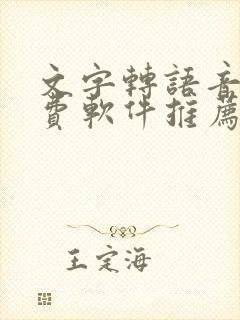 文字轉語音
費軟件推薦
王定海